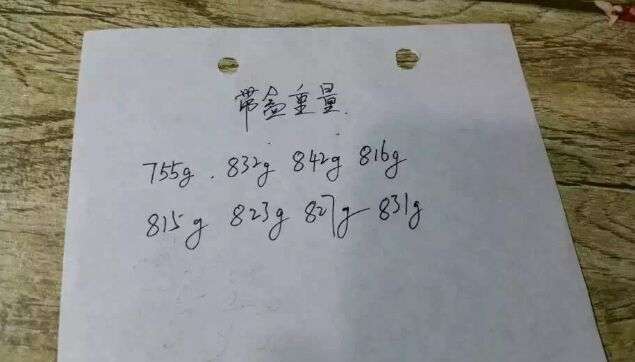 带盒重量
755g. 832g 842g 816g
815g 823g 827g 831g